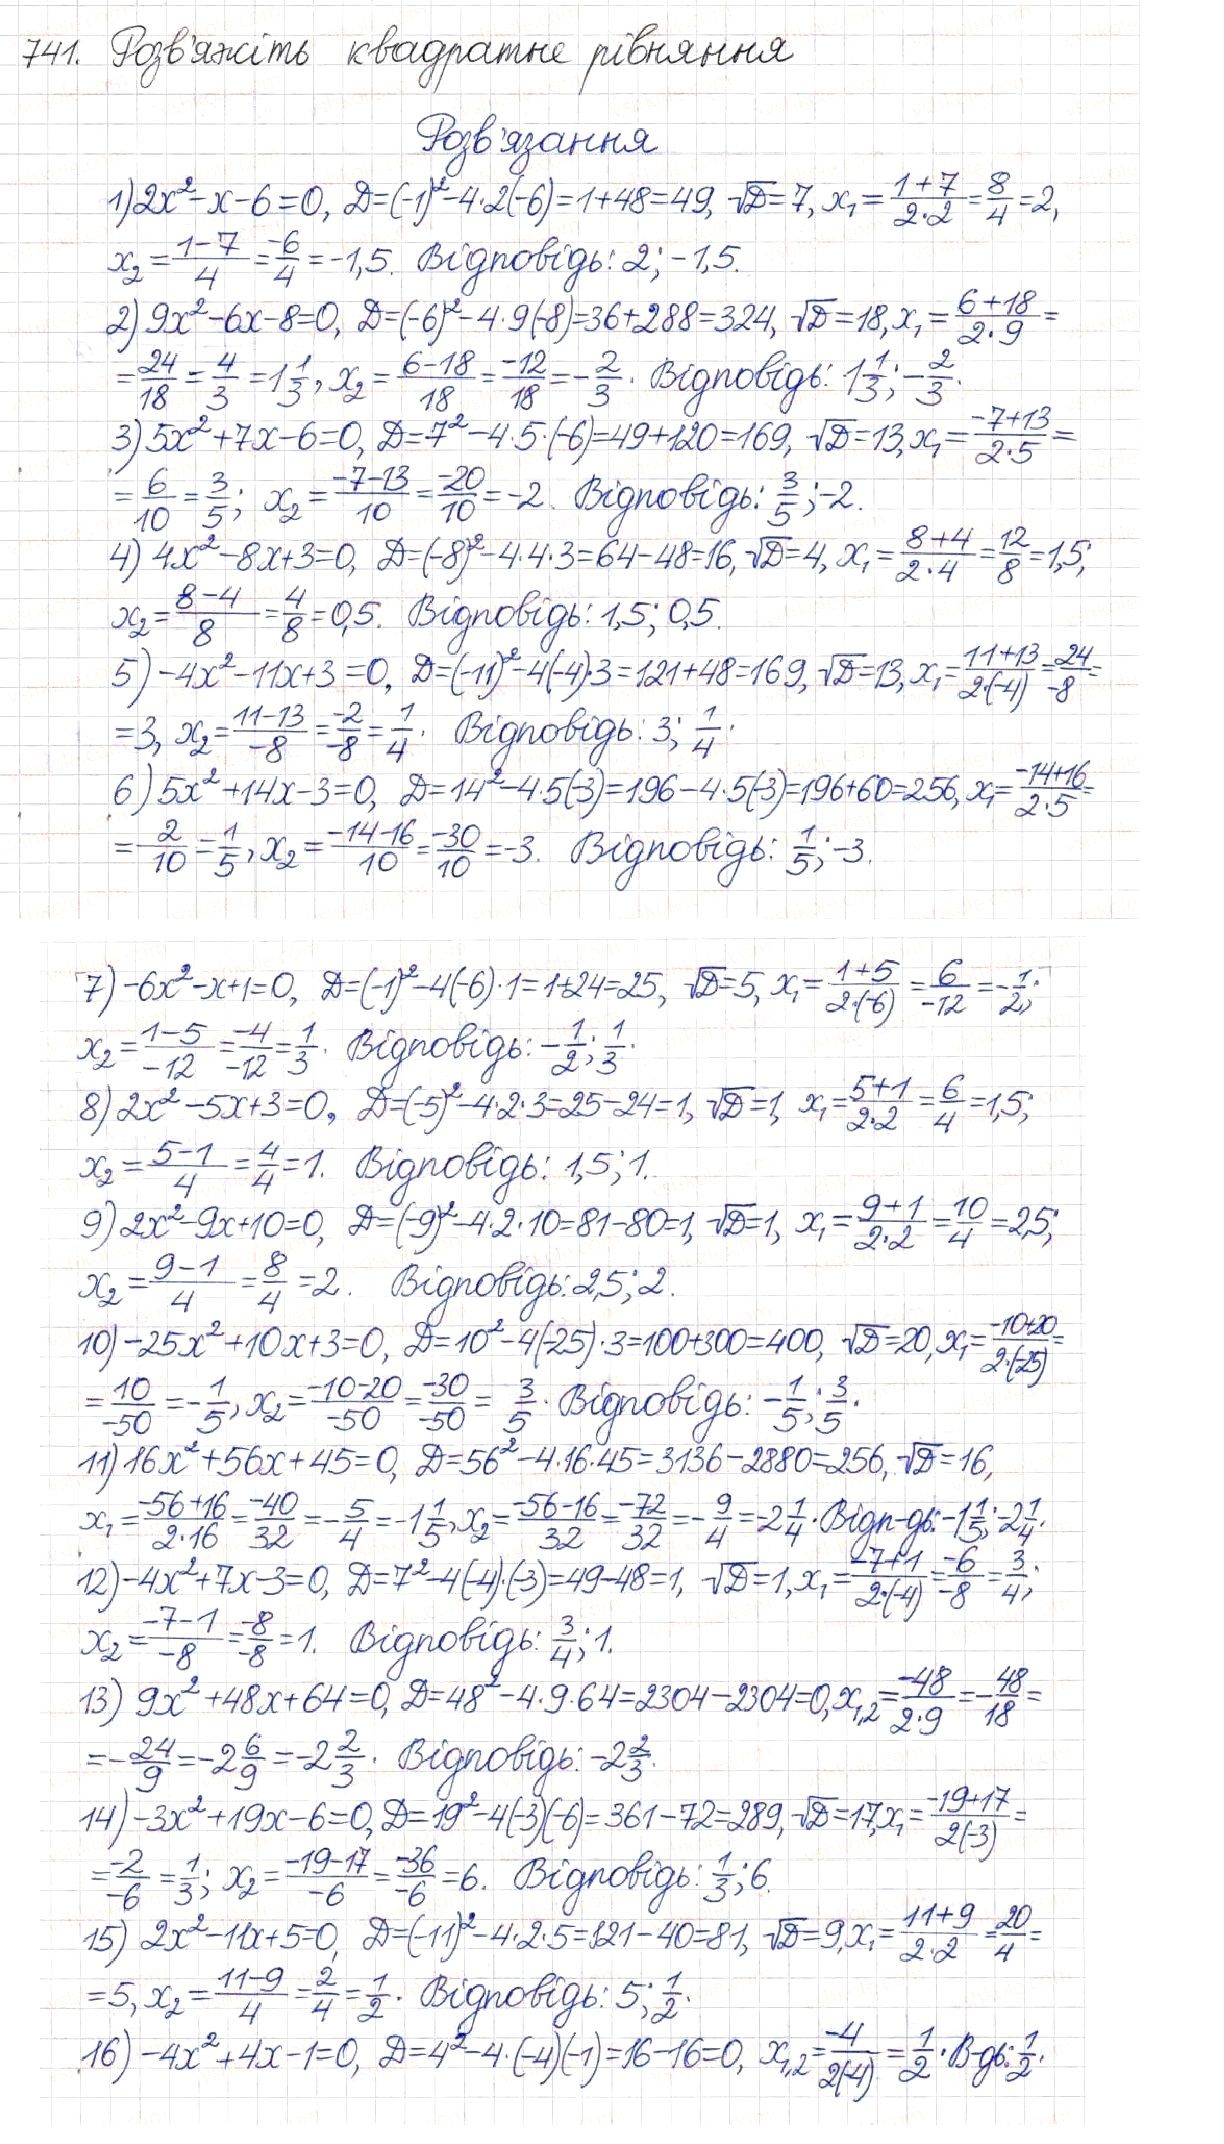 741. Розв'яжіть квадратне рівняння
Розв'язання
1) 2x²-x-6=0, D=(-1)²-4·2(-6)=1+48=49, √D=7, x₁=(1+7)/(2·2)=8/4=2,
x₂=(1-7)/4=-6/4=-1,5. Відповідь: 2; -1,5.
2) 9x²-6x-8=0, D=(-6)²-4·9(-8)=36+288=324, √D=18, x₁=(6+18)/(2·9)=
=24/18=4/3=1 1/3, x₂=(6-18)/18=-12/18=-2/3. Відповідь: 1 1/3; -2/3.
3) 5x²+7x-6=0, D=7²-4·5·(-6)=49+120=169, √D=13, x₁=(-7+13)/(2·5)=
=6/10=3/5; x₂=(-7-13)/10=-20/10=-2. Відповідь: 3/5; -2.
4) 4x²-8x+3=0, D=(-8)²-4·4·3=64-48=16, √D=4, x₁=(8+4)/(2·4)=12/8=1,5;
x₂=(8-4)/8=4/8=0,5. Відповідь: 1,5; 0,5.
5) -4x²-11x+3=0, D=(-11)²-4(-4)·3=121+48=169, √D=13, x₁=(11+13)/(2·(-4))=24/-8=
=3, x₂=(11-13)/-8=-2/-8=1/4. Відповідь: 3; 1/4.
6) 5x²+14x-3=0, D=14²-4·5(-3)=196-4·5(-3)=196+60=256, x₁=(-14+16)/(2·5)=
=2/10=1/5, x₂=(-14-16)/10=-30/10=-3. Відповідь: 1/5; -3.
7) -6x²-x+1=0, D=(-1)²-4(-6)·1=1+24=25, √D=5, x₁=(1+5)/(2·(-6))=6/-12=-1/2;
x₂=(1-5)/-12=-4/-12=1/3. Відповідь: -1/2; 1/3.
8) 2x²-5x+3=0, D=(-5)²-4·2·3=25-24=1, √D=1, x₁=(5+1)/(2·2)=6/4=1,5;
x₂=(5-1)/4=4/4=1. Відповідь: 1,5; 1.
9) 2x²-9x+10=0, D=(-9)²-4·2·10=81-80=1, √D=1, x₁=(9+1)/(2·2)=10/4=2,5;
x₂=(9-1)/4=8/4=2. Відповідь: 2,5; 2.
10) -25x²+10x+3=0, D=10²-4(-25)·3=100+300=400, √D=20, x₁=(-10+20)/(2·(-25))=
=10/-50=-1/5, x₂=(-10-20)/-50=-30/-50=3/5. Відповідь: -1/5; 3/5.
11) 16x²+56x+45=0, D=56²-4·16·45=3136-2880=256, √D=16,
x₁=(-56+16)/(2·16)=-40/32=-5/4=-1 1/5, x₂=(-56-16)/32=-72/32=-9/4=-2 1/4. Відп-дь: -1 1/5; -2 1/4.
12) -4x²+7x-3=0, D=7²-4(-4)·(-3)=49-48=1, √D=1, x₁=(-7+1)/(2·(-4))=-6/-8=3/4;
x₂=(-7-1)/-8=-8/-8=1. Відповідь: 3/4; 1.
13) 9x²+48x+64=0, D=48²-4·9·64=2304-2304=0, x₁,₂=-48/(2·9)=-48/18=
=-24/9=-2 6/9=-2 2/3. Відповідь: -2 2/3.
14) -3x²+19x-6=0, D=19²-4(-3)(-6)=361-72=289, √D=17, x₁=(-19+17)/(2(-3))=
=-2/-6=1/3; x₂=(-19-17)/-6=-36/-6=6. Відповідь: 1/3; 6.
15) 2x²-11x+5=0, D=(-11)²-4·2·5=121-40=81, √D=9, x₁=(11+9)/(2·2)=20/4=
=5, x₂=(11-9)/4=2/4=1/2. Відповідь: 5; 1/2.
16) -4x²+4x-1=0, D=4²-4·(-4)(-1)=16-16=0, x₁,₂=-4/(2(-4))=1/2. В-дь: 1/2.